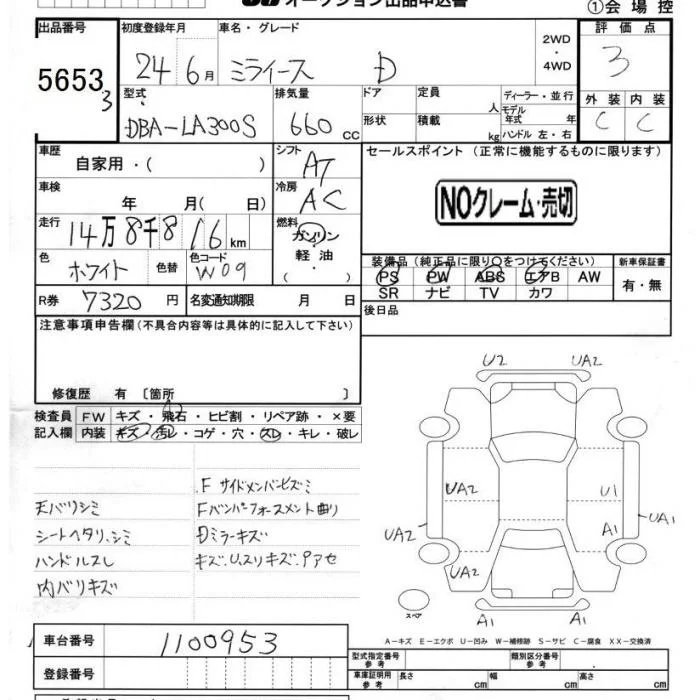 オークション出品申込書
①会場控
出品番号 初度登録年月 車名・グレード 2WD・4WD 評価点
5653 3 24 6月 ミライース D 3
外装 内装
C C
型式 排気量 ドア 定員 人 ディーラー・並行
DBA-LA300S 660cc 形状 積載 kg モデル年式 年
ハンドル 左・右
車歴 自家用・( ) シフト AT セールスポイント (正常に機能するものに限ります)
車検 年 月( 日) 冷房 AC NOクレーム・売切
走行 14万8千816km 燃料 ガソリン
軽油
・
( )
色 ホワイト 色替 色コード W09
装備品 (純正品に限り○をつけてください) 新車保証書
PS PW ABS エアB AW 有・無
SR ナビ TV カワ
R券 7320円 名変通知期限 月 日
後日品
注意事項申告欄(不具合内容等は具体的に記入して下さい)
修復歴 有 〔箇所 〕
検査員 FW キズ・飛石・ヒビ割・リペア跡・×要
記入欄 内装 キズ・汚レ・コゲ・穴・スレ・キレ・破レ
F サイドメンバーヒズミ
天バリシミ Fバンパーフォースメント曲り
シートヘタリ、シミ Dミラーキズ
ハンドルスレ キズ、U、スリキズ、Pアセ
内バリキズ
U2 UA2
UA2 U1
UA2 A1 UA1
UA2
スペア A1 A1
A-キズ E-エクボ U-凹み W-補修跡 S-サビ C-腐食 XX-交換済
車台番号 1100953
登録番号
型式指定番号 参考 類別区分番号 参考
車庫証明用 参考 長さ cm 幅 cm 高さ cm